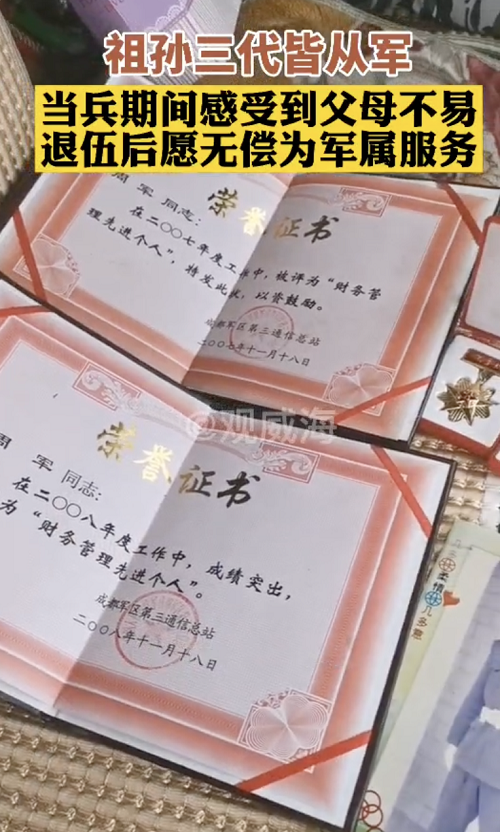 祖孙三代皆从军
当兵期间感受到父母不易
退伍后愿无偿为军属服务
荣誉证书
周军同志：
在二〇〇七年度工作中，被评为“财务管
理先进个人”，特发此状，以资鼓励。
成都军区第三通信总站
二〇〇七年十一月十八日
@观威海
荣誉证书
周军同志：
在二〇〇八年度工作中，成绩突出，
为“财务管理先进个人”。
成都军区第三通信总站
二〇〇八年十一月十八日
柔情
几多意